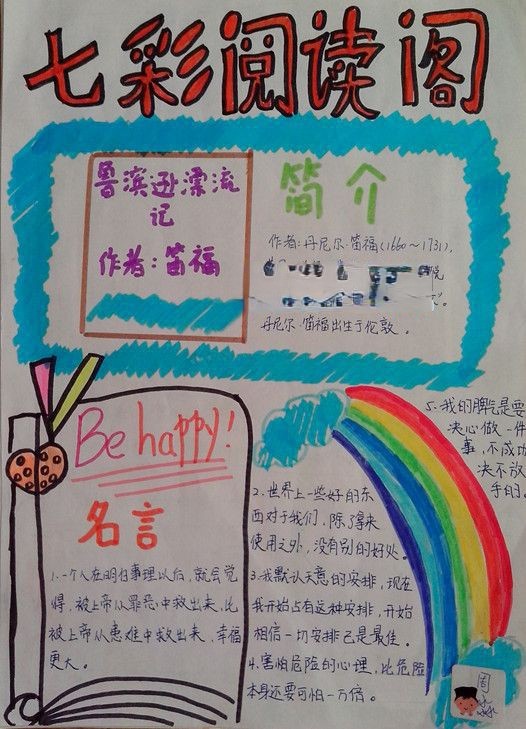 七彩阅读阁
鲁滨逊漂流
记
作者:笛福
简介
作者:丹尼尔·笛福(1660～1731),
丹尼尔·笛福出生于伦敦。
Be happy!
名言
1.一个人在明白事理以后,就会觉
得,被上帝从罪恶中救出来,比
被上帝从患难中救出来,幸福
更大。
2.世界上一些好的东
西对于我们,除了得来
使用之外,没有别的好处。
3.我默认天意的安排,现在
我开始占有这种安排,开始
相信一切安排已是最佳。
4.害怕危险的心理,比危险
本身还要可怕一万倍。
5.我的脾气是要
决心做一件
事,不成功
决不放
手的
周